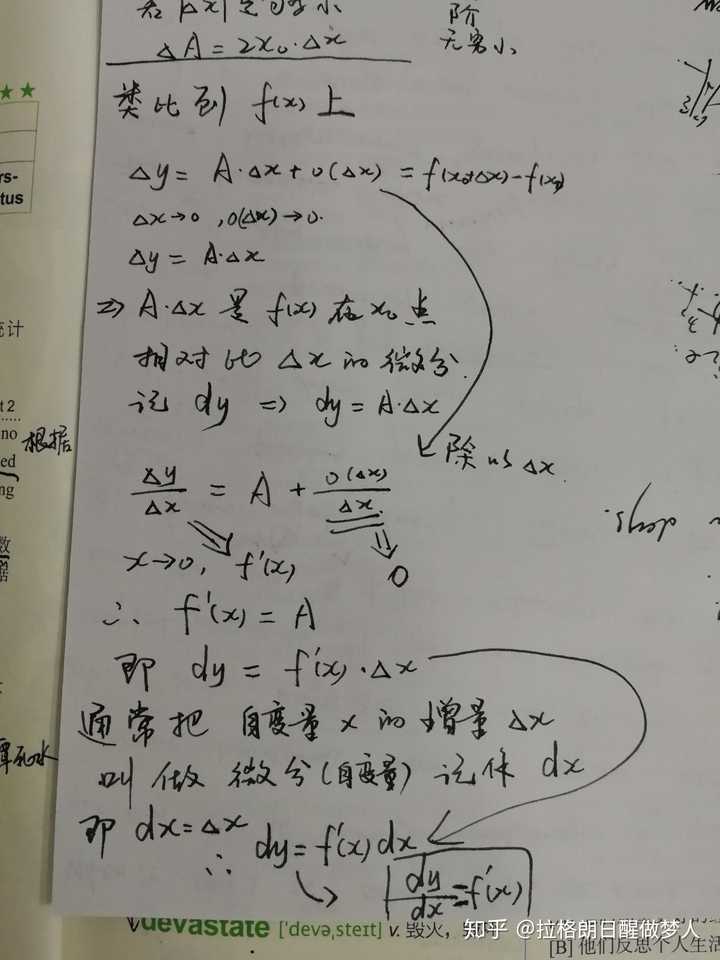 若|Δx|
阶
ΔA = 2x₀·Δx
无穷小
类比到 f(x) 上
Δy = A·Δx + o(Δx) = f(x₀+Δx) - f(x₀)
Δx→0, o(Δx)→0.
Δy = A·Δx
⇒ A·Δx 是 f(x) 在 x₀ 点
相对比 Δx 的微分.
记 dy ⇒ dy = A·Δx
除以 Δx.
Δy/Δx = A + o(Δx)/Δx
x→0, f'(x)
0
∴ f'(x) = A
即 dy = f'(x)·Δx
通常把 自变量 x 的增量 Δx
叫做 微分(自变量) 记作 dx
即 dx = Δx
∴ dy = f'(x) dx
dy/dx = f'(x)
rs-
tus
统计
t 2
no
ed
ng
根据
数
据
shop
devastate ['devəˌsteɪt] v. 毁灭，
[B] 他们反思个人生活
知乎 @拉格朗日醒做梦人